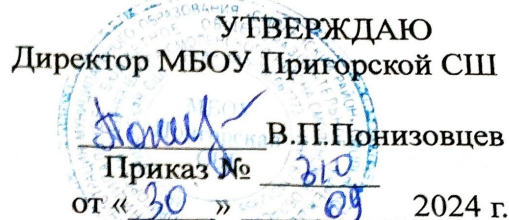 УТВЕРЖДАЮ
Директор МБОУ Пригорской СШ
В.П.Понизовцев
Приказ № 310
от «30» 09 2024 г.